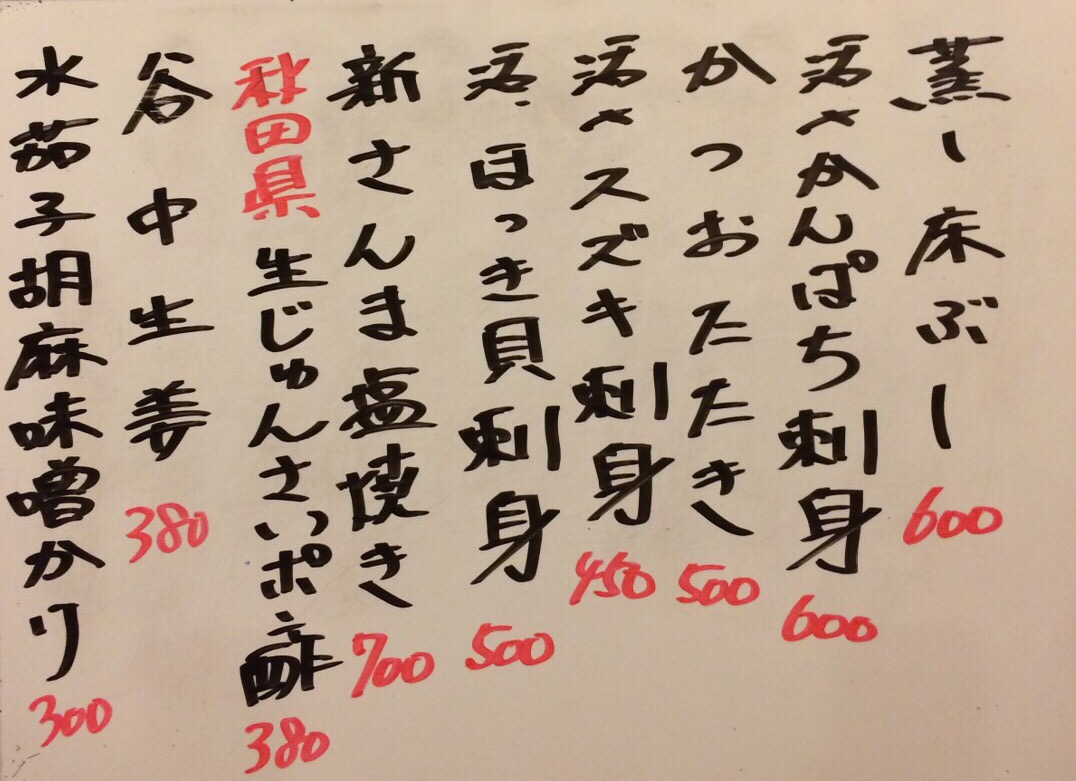 蒸し床ぶし 600
活〆かんぱち刺身 600
かつおたたき 500
活〆スズキ刺身 450
活ほっき貝刺身 500
新さんま塩焼き 700
秋田県 生じゅんさいポン酢 380
谷中生姜 380
水茄子胡麻味噌かけ 300